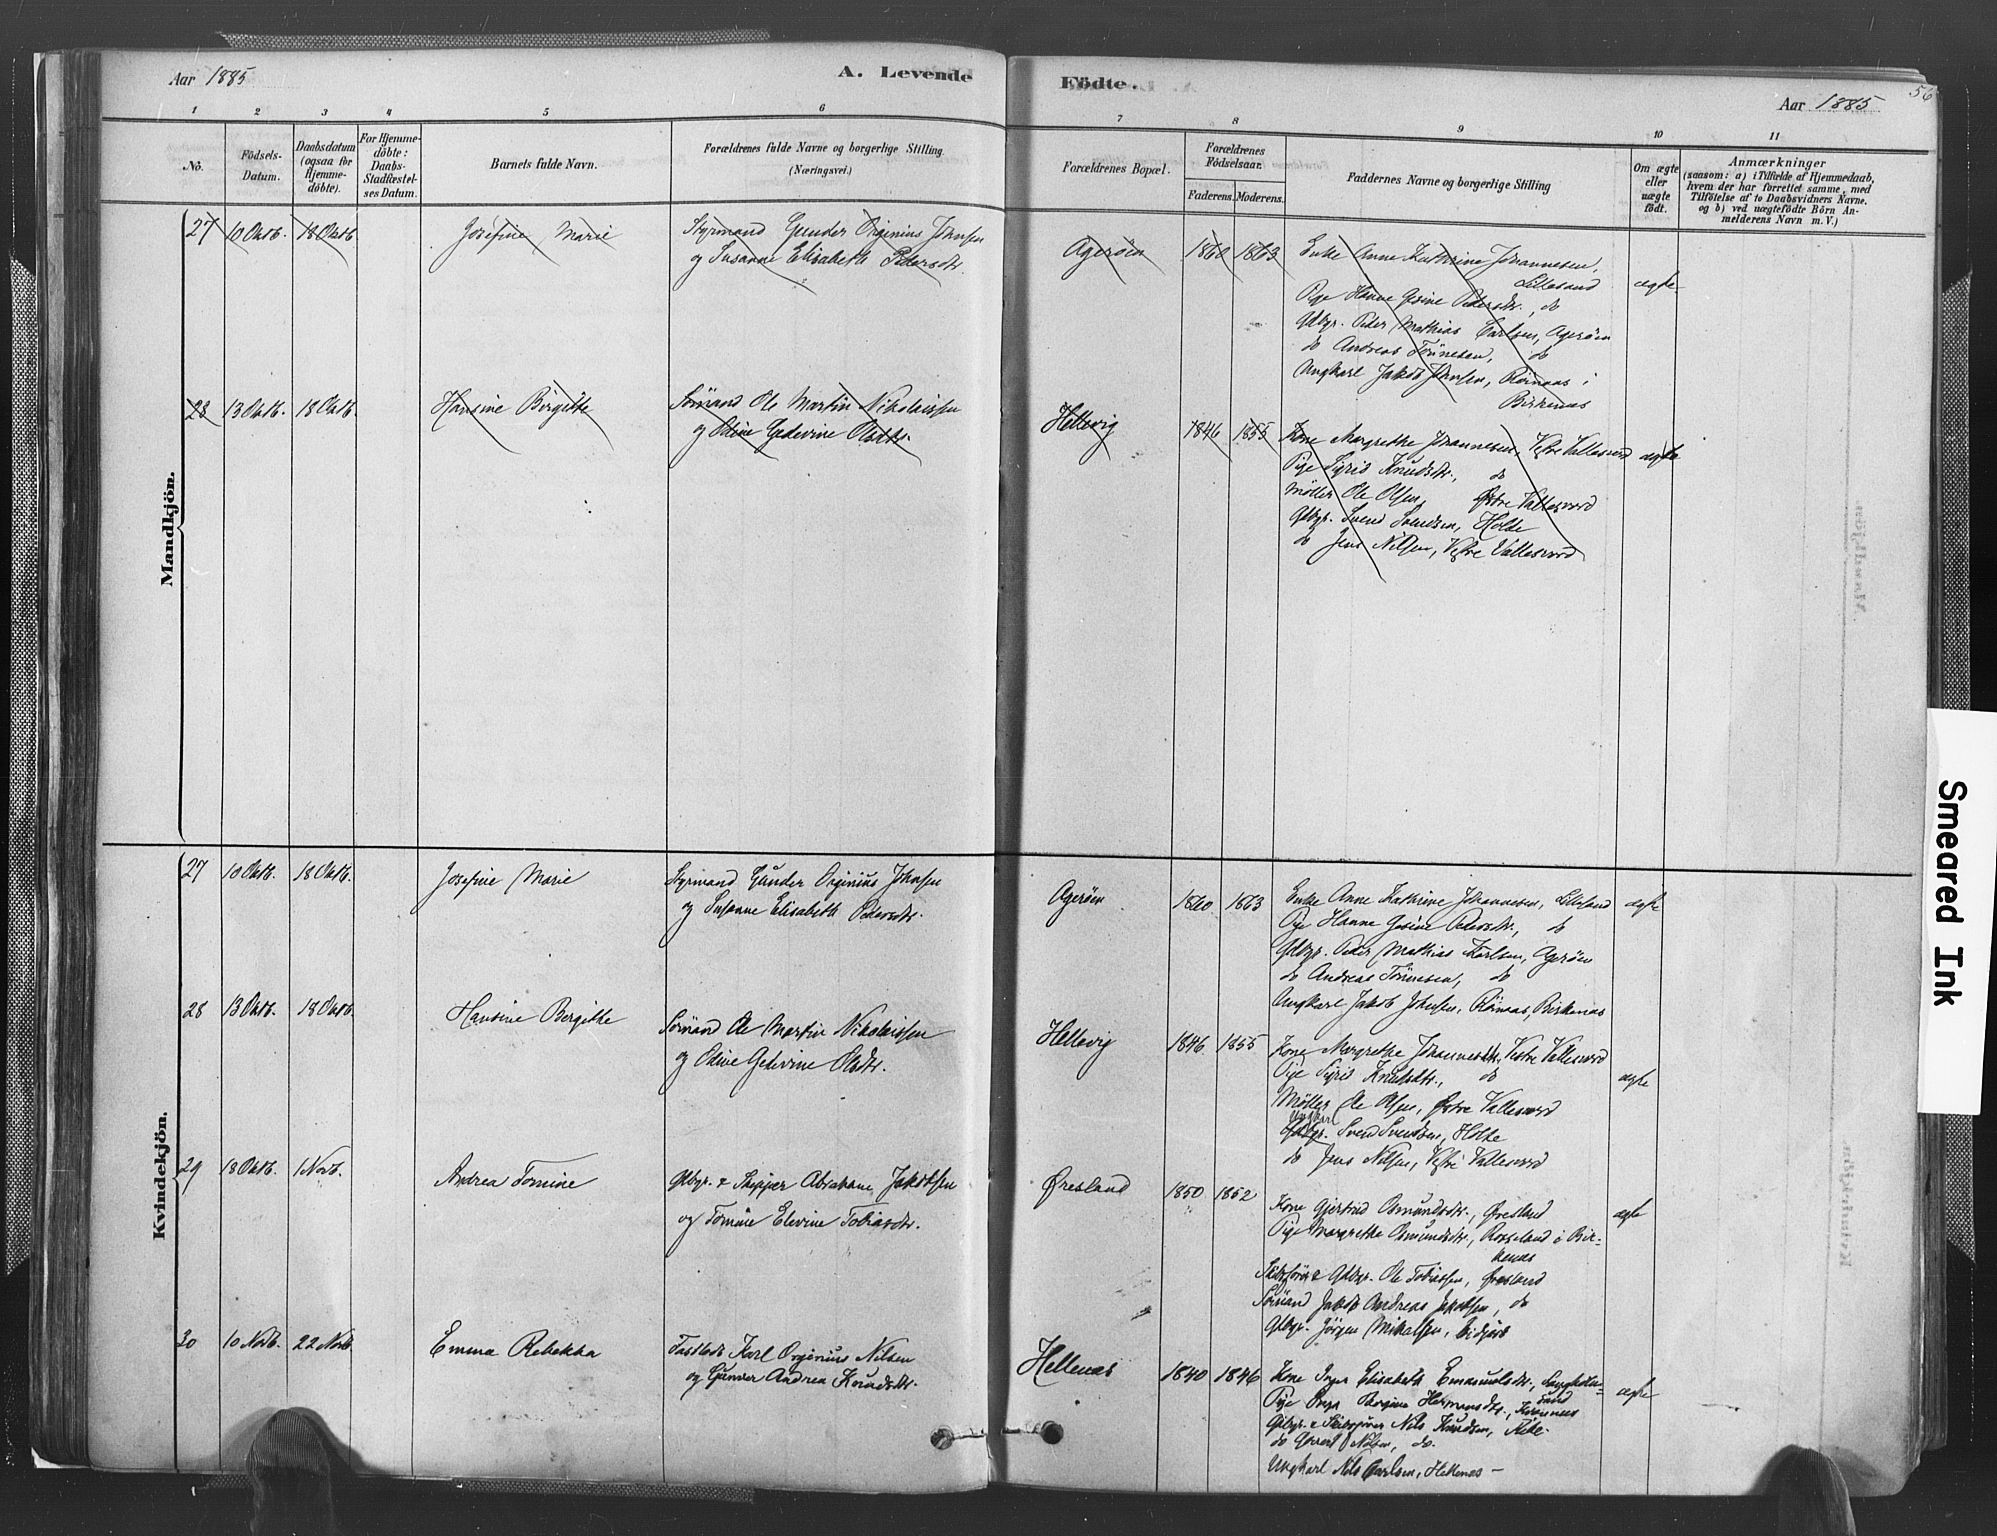 Aar 1885
A. Levende
Födte.
Aar 1885
56
1 2 3 4 5 6 7 8 9 10 11
No.
Födsels-
Datum.
Daabsdatum
(ogsaa for
Hjemme-
döbte).
For Hjemme-
döbte:
Daabs-
Stadfæstel-
ses Datum.
Barnets fulde Navn.
Forældrenes fulde Navne og borgerlige Stilling
(Næringsvei.)
Forældrenes Bopæl.
Forældrenes
Födselsaar.
Faderens. Moderens.
Faddernes Navne og borgerlige Stilling
Om ægte
eller
uægte
födt.
Anmærkninger
(saasom: a) i Tilfælde af Hjemmedaab,
hvem der har forrettet samme, med
Tilföielse af to Daabsvidners Navne,
og b) ved uægtefödte Börn An-
melderens Navn m. V.)
Mandkjön.
27 10 Oktb. 18 Oktb. Josefine Marie
Styrmand Gunder Orginius Johnsen
og Susanne Elisabeth Pedersdtr.
Agerøen 1860 1863
Enke Anne Kathrine Johannesen,
Lillesand
ægte
Pige Hanne Gesine Pedersdtr., do
Gdbgr. Peder Mathias Carlsen, Agerøen
do Andreas Tönnesen, do
Ungkarl Jakob Johnsen, Rörnaas i
Birkenæs
28 13 Oktb. 18 Oktb. Hansine Birgitte
Sømand Ole Martin Nikolaisen
og Odine Gedevine Olsdtr.
Hellevig 1846 1855
Kone Margrethe Johannesen, Vestre Vallesverd ægte
Pige Sigrid Knudsdtr., do
Møller Ole Olsen, Østre Vallesverd
Gdbgr. Svend Svendsen, Holte
do Jens Nilsen, Vestre Vallesverd
Kvindekjön.
27 10 Oktb. 18 Oktb. Josefine Marie
Styrmand Gunder Orginius Johnsen
og Susanne Elisabeth Pedersdtr.
Agerøen 1860 1863
Enke Anne Kathrine Johannesen, Lillesand ægte
Pige Hanne Gesine Pedersdtr., do
Gdbgr. Peder Mathias Karlsen, Agerøen
do Andreas Tönnesen, do
Ungkarl Jakob Johnsen, Rörnaas, Birkenæs
28 13 Oktb. 18 Oktb. Hansine Bergithe
Sømand Ole Martin Nikolaisen
og Odine Gedevine Olsdtr.
Hellevig 1846 1855
Kone Margrethe Johannesdtr, Vestre Vallesverd
Pige Sigrid Knudsdtr., do
ægte
Møller Ole Olsen, Østre Vallesverd
Ungkarl
Gdbgr. Svend Svendsen, Holte
do Jens Nilsen, Vestre Vallesverd
29 18 Oktb. 1 Novb. Andrea Tomine
Gdbgr. & Skipper Abraham Jakobsen
og Tomine Elevine Tobiasdtr.
Øresland 1850 1852
Kone Gjertrud Osmundsdtr., Øresland
ægte
Pige Margrethe Osmundsdtr., Rosseland i Bir-
kenæs
& Gdbgr. Ole Tobiassen, Øresland
Sømand Jakob Andreas Jakobsen, do
Gdbgr. Jörgen Mikalsen,
30 10 Novb. 22 Novb. Emma Rebekka
Karl Orginius Nilsen
og Gunver Andrea Knudsdtr.
Hellenæs 1840 1846
Kone Inger Elisabeth Emanuelsdtr.,
ægte
Pige Inga Hermansdtr.,
Gdbgr. & Nils Knudsen,
do Nilsen, do.
Ungkarl Nils Carlsen, Hellenæs –
Smeared Ink